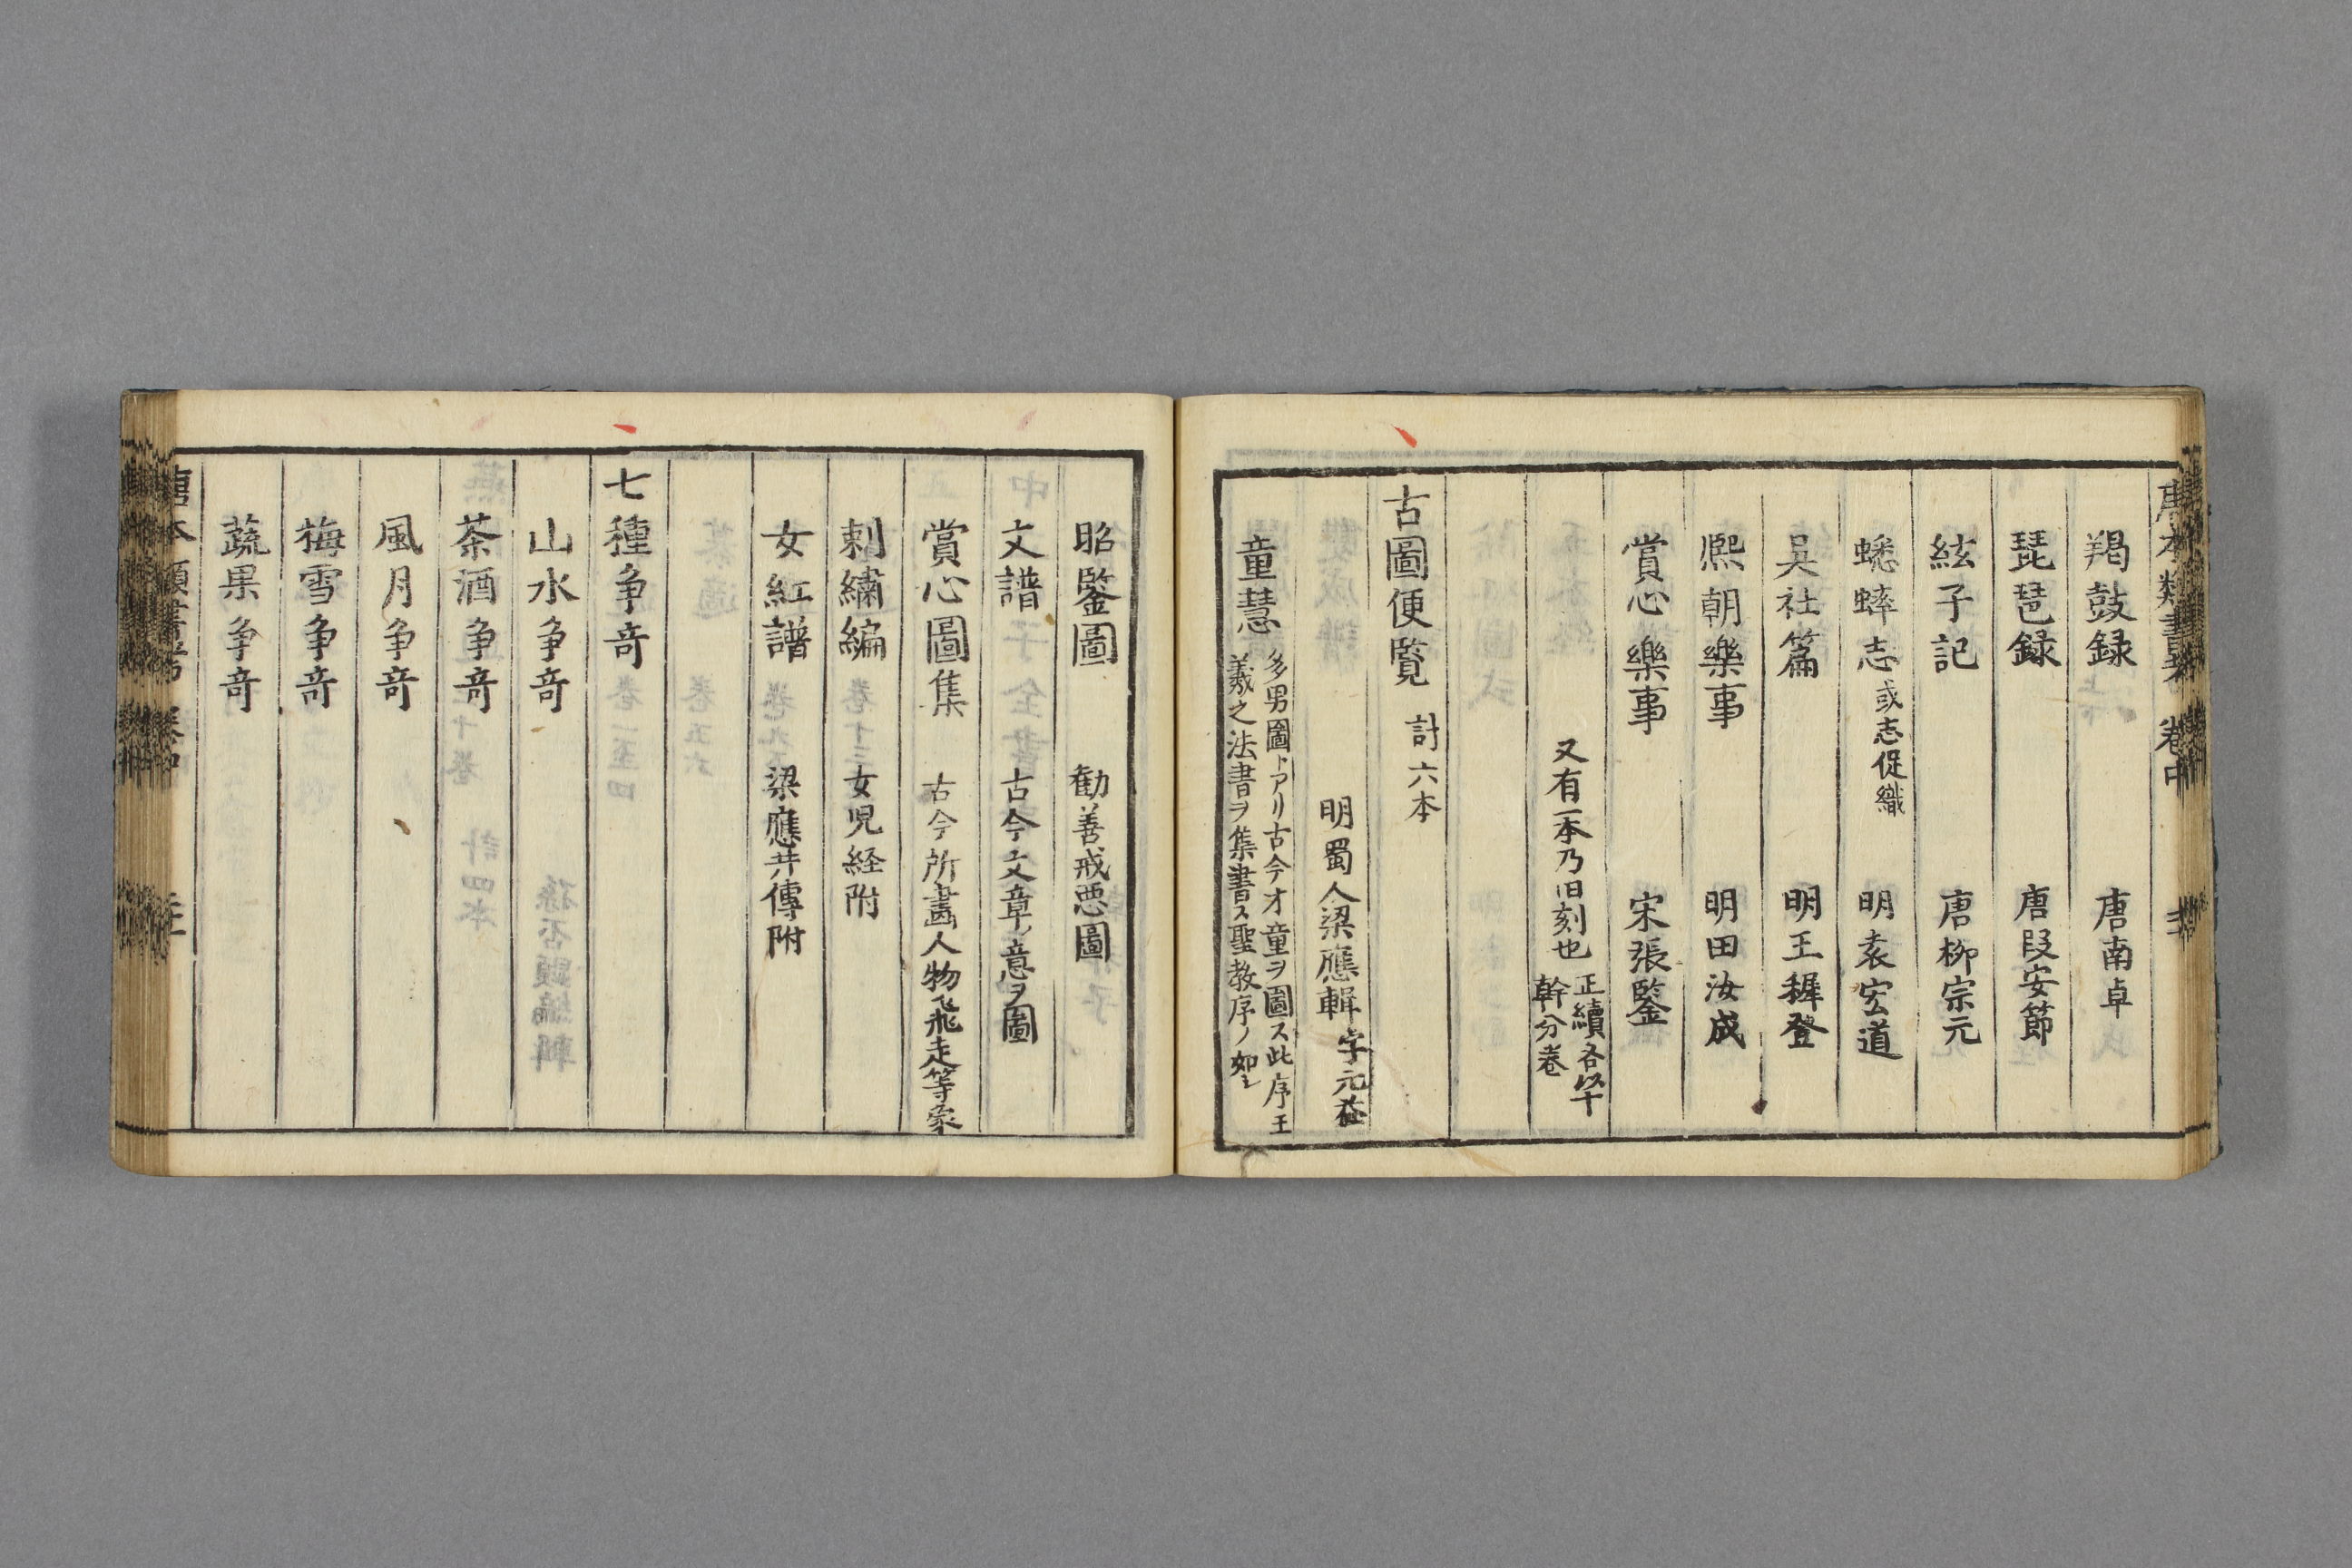 唐本類書考 卷中
羯鼓録 唐南卓
琵琶録 唐段安節
絃子記 唐柳宗元
蟋蟀志 或志促織 明袁宏道
吳社篇 明王穉登
熈朝樂事 明田汝成
賞心樂事 宋張鑒
又有一本乃旧刻也 正續各以十
幹分卷
古圖便覧 計六本
明蜀人梁應輯 字元益
童慧 多男圖トアリ古今才童ヲ圖ス此序王
羲之法書ヲ集書ス聖教序ノ如シ
昭鑒圖 勧善戒悪圖
文譜 古今文章ノ意ヲ圖
賞心圖集 古今所畵人物飛走等象
刺繍編 女児経附
女紅譜 梁應井傳附
七種争竒
山水争竒
茶酒争竒
風月争竒
梅雪争竒
蔬果争竒
唐本類書考 卷中